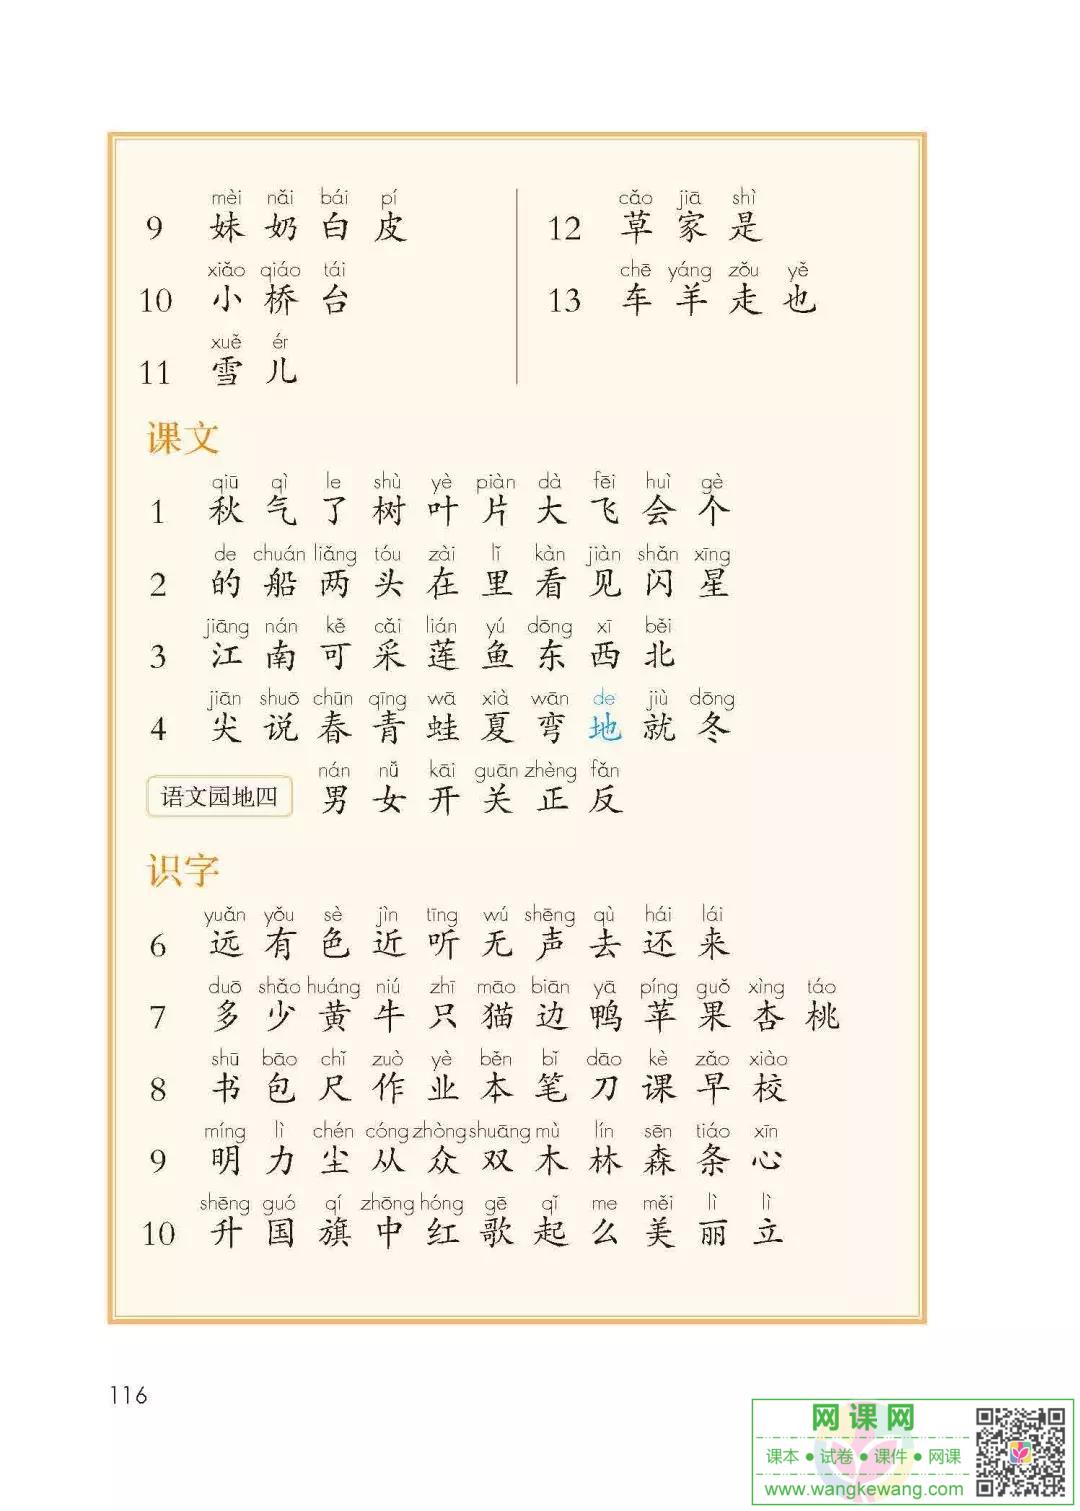 mèi nǎi bái pí
9 妹 奶 白 皮
xiǎo qiáo tái
10 小 桥 台
xuě ér
11 雪 儿
cǎo jiā shì
12 草 家 是
chē yáng zǒu yě
13 车 羊 走 也
课文
qiū qì le shù yè piàn dà fēi huì gè
1 秋 气 了 树 叶 片 大 飞 会 个
de chuán liǎng tóu zài lǐ kàn jiàn shǎn xīng
2 的 船 两 头 在 里 看 见 闪 星
jiāng nán kě cǎi lián yú dōng xī běi
3 江 南 可 采 莲 鱼 东 西 北
jiān shuō chūn qīng wā xià wān de jiù dōng
4 尖 说 春 青 蛙 夏 弯 地 就 冬
nán nǚ kāi guān zhèng fǎn
语文园地四 男 女 开 关 正 反
识字
yuǎn yǒu sè jìn tīng wú shēng qù hái lái
6 远 有 色 近 听 无 声 去 还 来
duō shǎo huáng niú zhī māo biān yā píng guǒ xìng táo
7 多 少 黄 牛 只 猫 边 鸭 苹 果 杏 桃
shū bāo chǐ zuò yè běn bǐ dāo kè zǎo xiào
8 书 包 尺 作 业 本 笔 刀 课 早 校
míng lì chén cóng zhòng shuāng mù lín sēn tiáo xīn
9 明 力 尘 从 众 双 木 林 森 条 心
shēng guó qí zhōng hóng gē qǐ me měi lì lì
10 升 国 旗 中 红 歌 起 么 美 丽 立
116
网课网
课本 ● 试卷 ● 课件 ● 网课
www.wangkewang.com